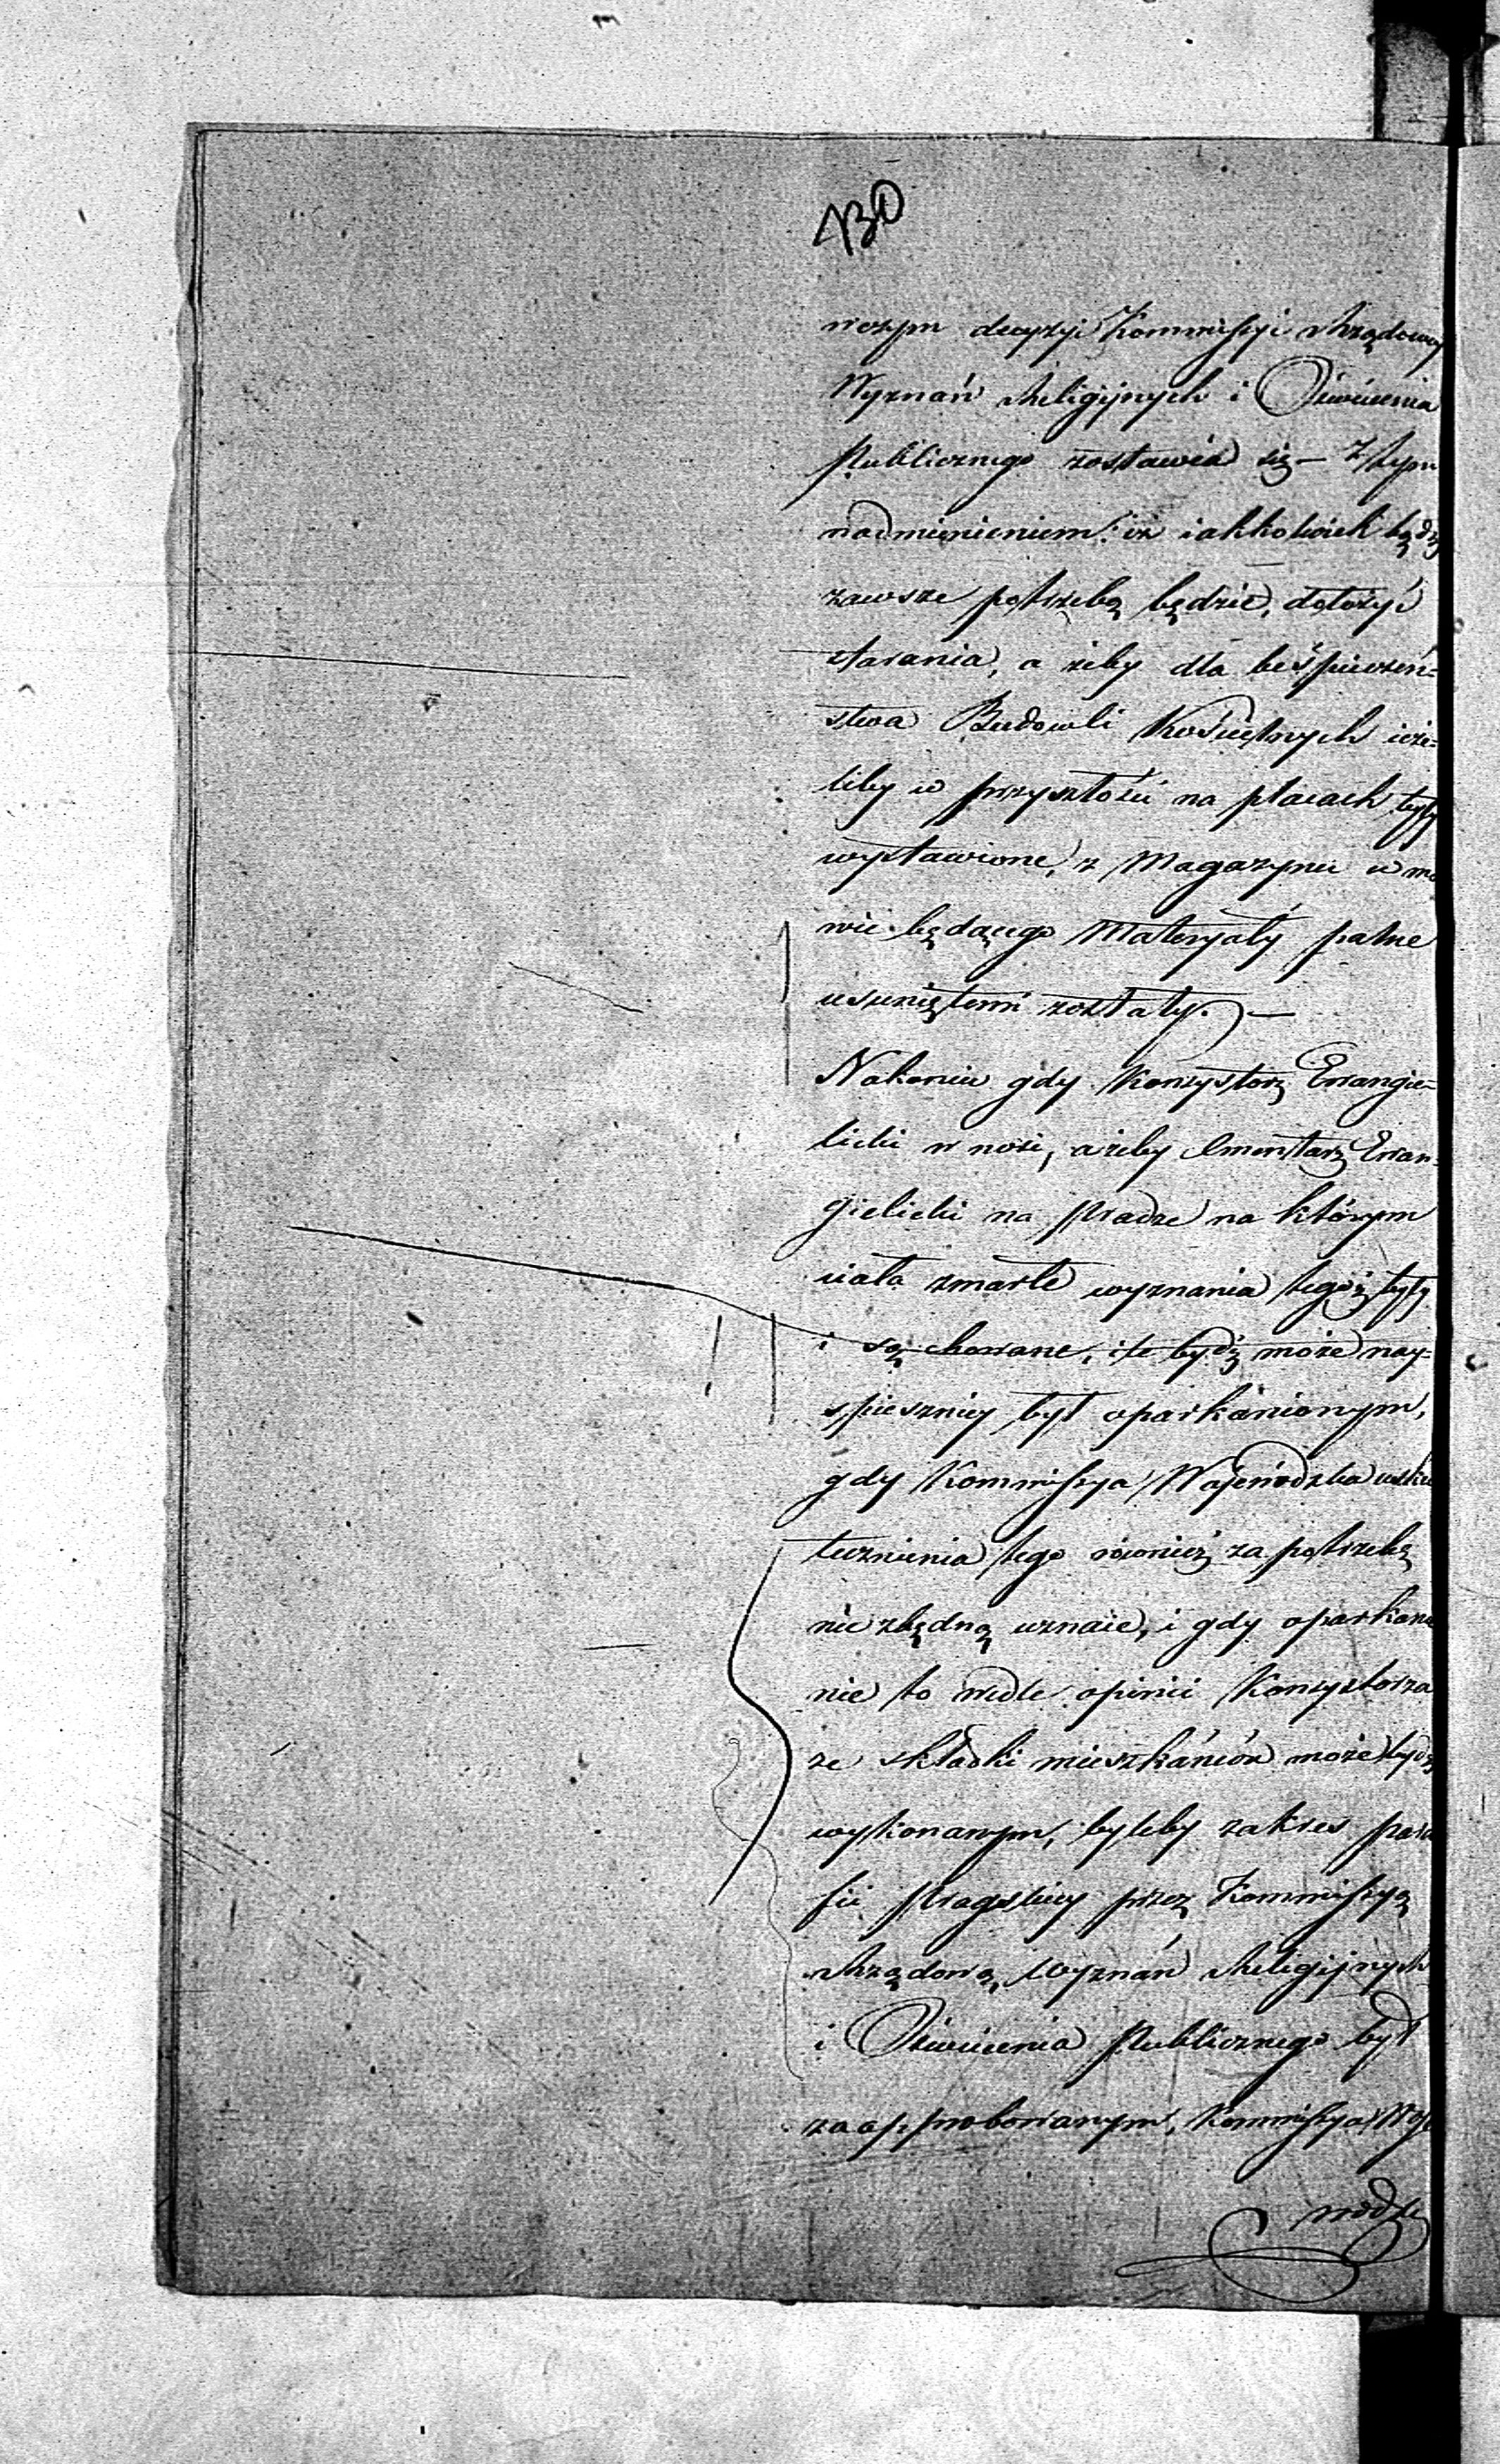 130
wszym decyzyi Kommissyi Rządowey
Wyznań Religijnych i Oświecenia
Publicznego zostawia się – Z tym
nadmienieniem: iż iakkolwiek bądź
zawsze potrzebą będzie, dołożyć
starania, a żeby dla beśpieczeń=
stwa Budowli Kościelnych ieże=
liby w przyszłości na placach były
wystawione, z Magazynu w mo
wie będącego Materyały palne
usuniętemi zostały. –
Nakoniec gdy Konsystorz Ewangie=
licki wnosi, ażeby Cmentarz Ewan=
gielicki na Pradze na którym
ciała zmarłe wyznania tegoż były
i są chowane, ile bydź może nay=
spieszniey był oparkanionym,
gdy Kommissya Wojewódzka usku
tecznienia tego również za potrzebę
niezbędną uznaie, i gdy oparkanie
nie to wedle opinii Konsystorza
ze składki mieszkańców może bydź
wykonanym, byleby zakres para
fii Pragskiey przez Kommissyą
Rządową Wyznań Religijnych
i Oświecenia Publicznego był
zaapprobowanym, Kommissya Woje
wódz